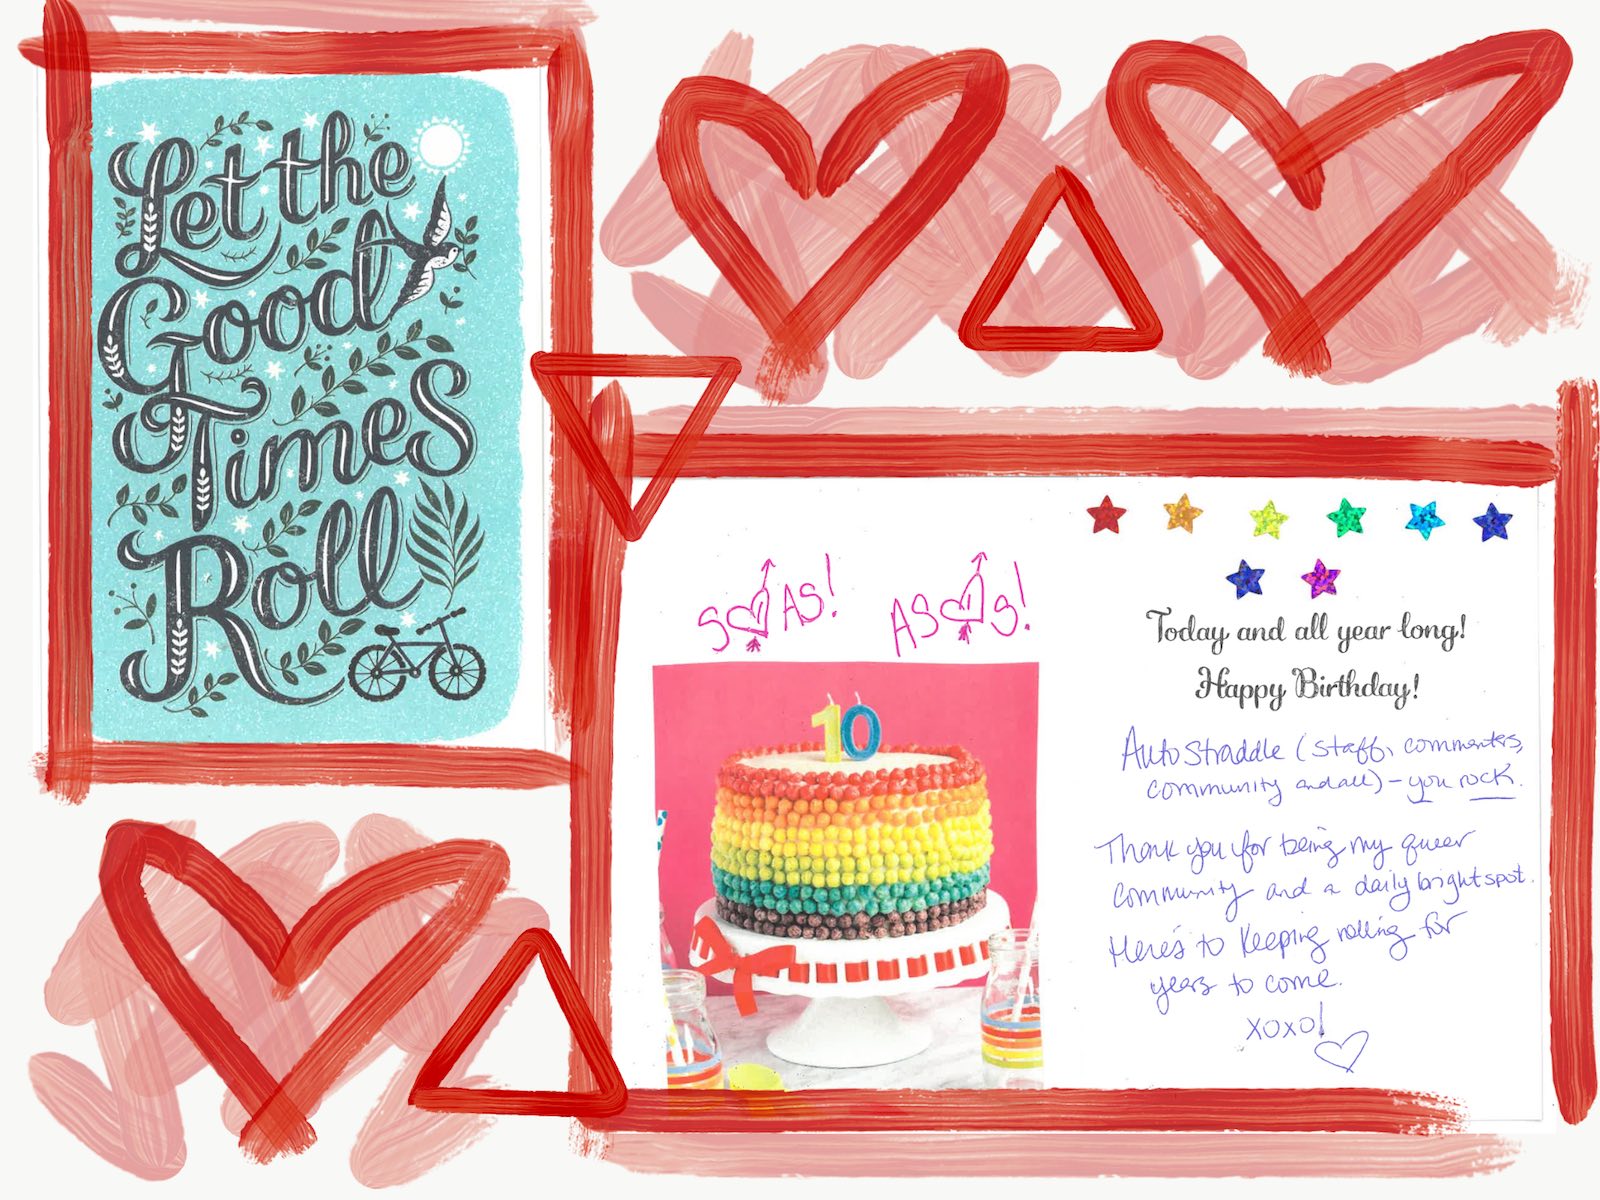 Let the
Good
Times
Roll
S♡AS!
AS♡S!
10
Today and all year long!
Happy Birthday!
Autostraddle (staff, commenters,
community and all) – you rock.
Thank you for being my queer
community and a daily bright spot.
Here's to keeping rolling for
years to come.
xoxo!
♡